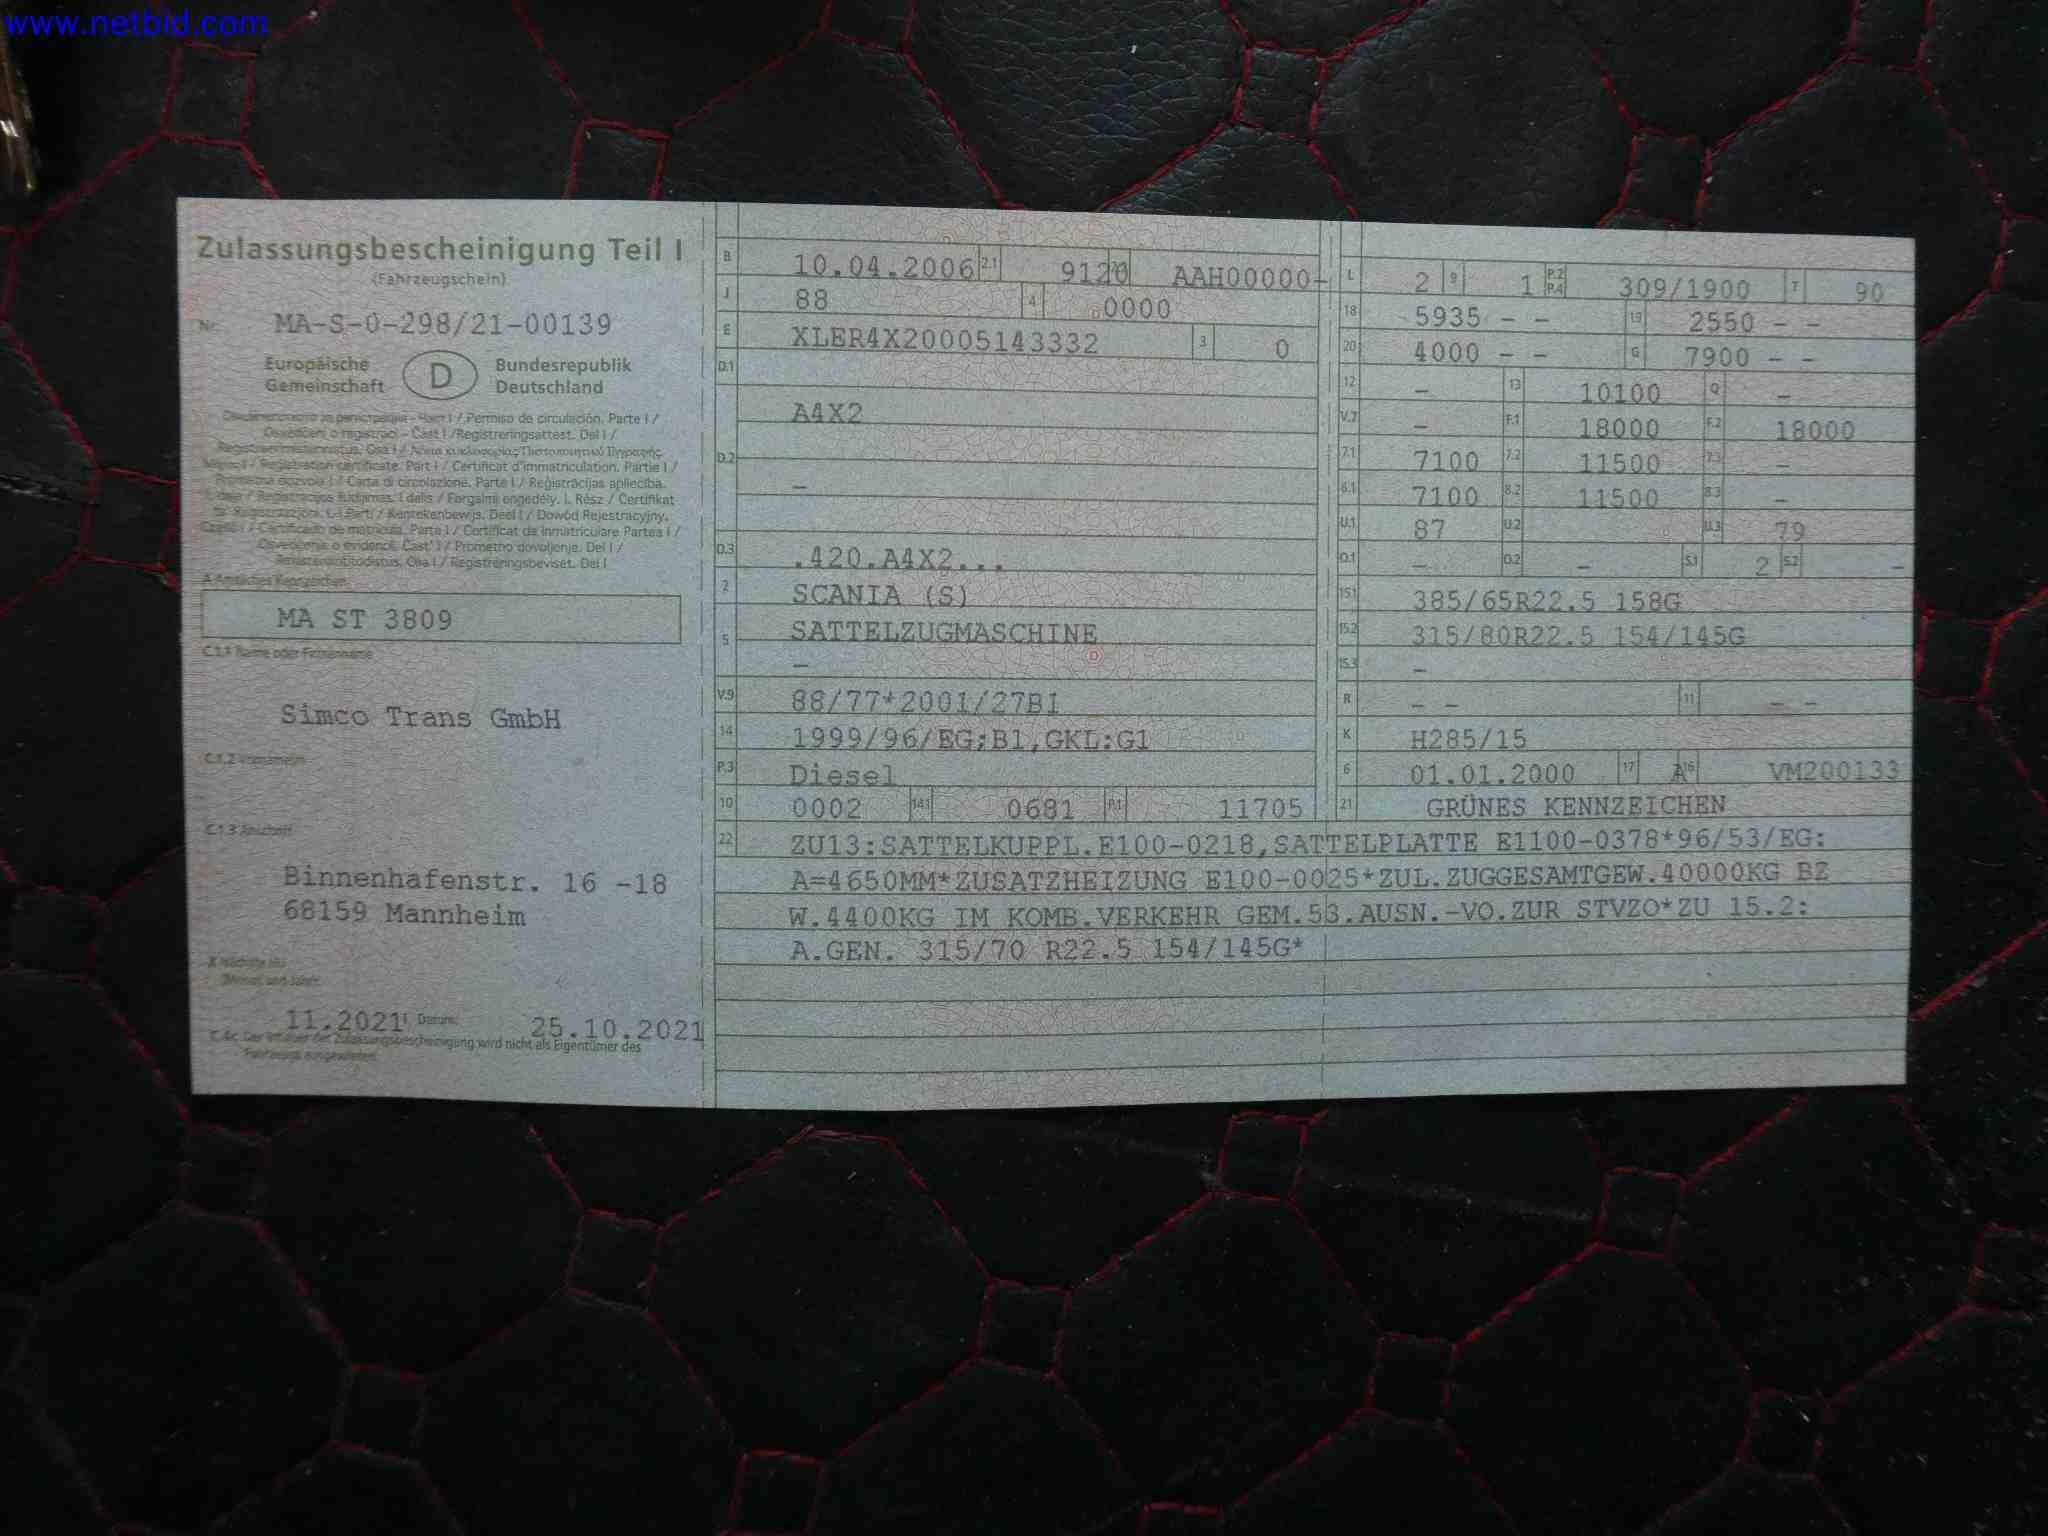 www.netbid.com
Zulassungsbescheinigung Teil I
(Fahrzeugschein)
Nr. MA-S-0-298/21-00139
Europäische Gemeinschaft D Bundesrepublik Deutschland
Permiso de circulación. Parte I /
Osvědčení o registraci - Část I / Registreringsattest. Del I /
Registration certificate. Part I / Certificat d'immatriculation. Partie I /
Prometna dozvola I / Carta di circolazione. Parte I / Reģistrācijas apliecība.
I. daļa / Registracijos liudijimas. I dalis / Forgalmi engedély. I. Rész / Ċertifikat
ta' Reġistrazzjoni. L-I Parti / Kentekenbewijs. Deel I / Dowód Rejestracyjny.
Część I / Certificado de matrícula. Parte I / Certificat de înmatriculare Partea I /
Osvedčenie o evidencii. Časť I / Prometno dovoljenje. Del I /
Rekisteröintitodistus. Osa I / Registreringsbeviset. Del I
A Amtliches Kennzeichen
MA ST 3809
C.1.1 Name oder Firmenname
Simco Trans GmbH
C.1.2 Vorname(n)
C.1.3 Anschrift
Binnenhafenstr. 16 -18
68159 Mannheim
11.2021 Datum: 25.10.2021
C.4c Der Inhaber der Zulassungsbescheinigung wird nicht als Eigentümer des
Fahrzeugs ausgewiesen.
B 10.04.2006 2.1 9120 AAH00000-
J 88 4 0000
E XLER4X20005143332 3 0
D.1
A4X2
D.2
-
D.3 .420.A4X2...
2 SCANIA (S)
5 SATTELZUGMASCHINE
-
V.9 88/77*2001/27B1
14 1999/96/EG;B1,GKL:G1
P.3 Diesel
10 0002 14.1 0681 P.1 11705
L 2 9 1 P.2 P.4 309/1900 T 90
18 5935 - - 19 2550 - -
20 4000 - - G 7900 - -
12 - 13 10100 Q -
V.7 - F.1 18000 F.2 18000
7.1 7100 7.2 11500 7.3 -
8.1 7100 8.2 11500 8.3 -
U.1 87 U.2 U.3 79
O.1 - O.2 - S.1 2 S.2 -
15.1 385/65R22.5 158G
15.2 315/80R22.5 154/145G
15.3 -
R - - 11 - -
K H285/15
6 01.01.2000 17 A 16 VM200133
21 GRÜNES KENNZEICHEN
22 ZU13:SATTELKUPPL.E100-0218,SATTELPLATTE E1100-0378*96/53/EG:
A=4650MM*ZUSATZHEIZUNG E100-0025*ZUL.ZUGGESAMTGEW.40000KG BZ
W.4400KG IM KOMB.VERKEHR GEM.53.AUSN.-VO.ZUR STVZO*ZU 15.2:
A.GEN. 315/70 R22.5 154/145G*